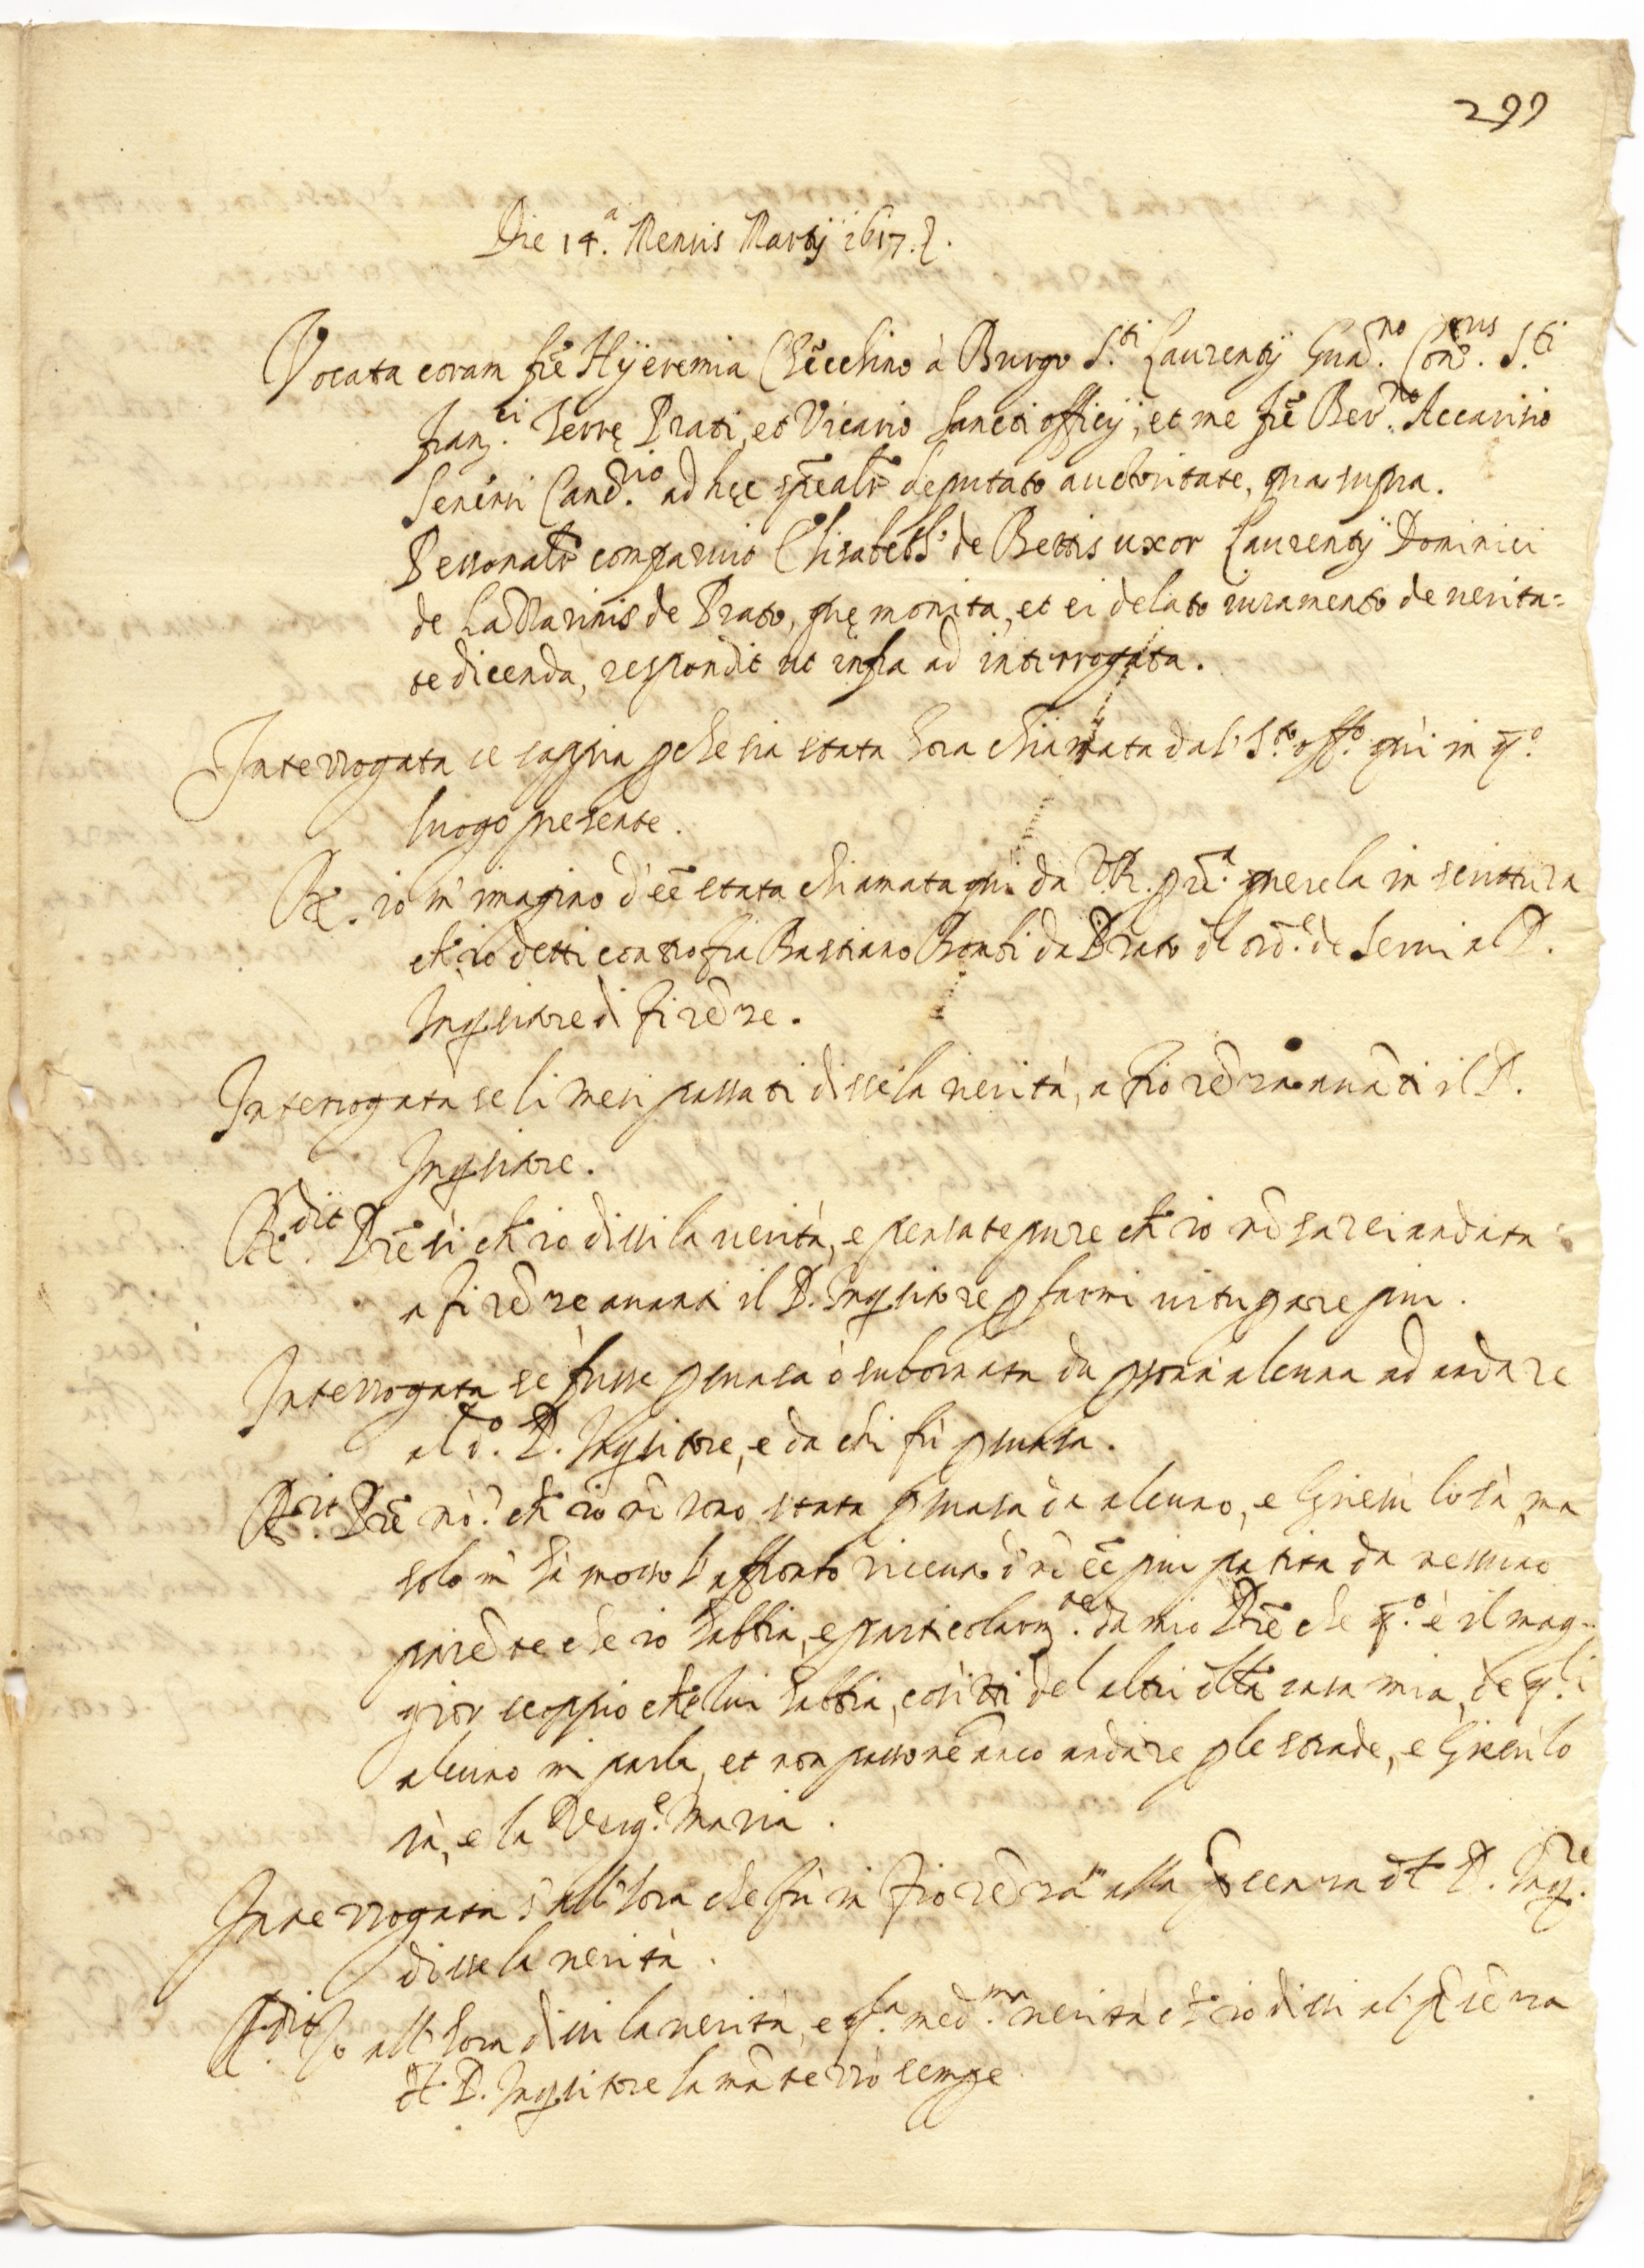 299
Die 14.a Mensis Martij 1617.
Vocata coram fre Hyeremia Checchino à Burgo S.ti Laurentij Guad.no Con.tus S.ti
Fran.ci Terrę Prati, et Vicario Sancti officij, et me fre Ber.no Accarisio
Senensi Canc.rio ad hęc spealr deputato auctoritate, qua supra.
Personalr comparuit Elisabetth.a de Bettis uxor Laurentij Dominici
de La Marinis de Prato, quę monita, et ei delato iuramento de verita=
te dicenda, respondit ut infra ad interrogata.
Interrogata se sappia pche sia stata hora chiamata dal S.to off.o quì in q.o
luogo presente.
R. io m'imagino d'ee stata chiamata qui da V.R. querela in scrittura
ch'io detti contro fra Bastiano Bonti da Prato dl ord.e de Servi al P.
Inqsitore di Fireze.
Interrogata se li mesi passati disse la verità, a Fioreza avati il P.
Inqsitore.
R.dit Pre sì ch'io dissi la verità, e pensate pure ch'io no sarei andata
a Fireze avanti il P. Inqsitore p farmi vituperare piu.
Interrogata se fusse psuasa ò subornata da psona alcuna ad andare
al d.o P. Inqsitore, e da chi fù psuasa.
R.dit Pre nò: ch'io no sono stata psuasa da alcuno, e Giesù lo sà, ma
solo m'hà mosso l'affronto ricevuto d no ee piu patita da nessuno
parete che io habbia, e particolarm.te da mio Pre che q.o è il mag=
gior scoppio che lui habbia, così tti del altri dlla casa mia, de q.li
alcuno mi parla, et non possone anco andare p le strade, e Giesù lo
sà, e la Verg.e Maria.
Interrogata s'all'hora che fù in Fioreza alla psenza dl P. Inq.re
disse la verità.
R.dit Io all'hora dissi la verità, e q.la med.ma verità ch'io dissi al pseza
dl P. Inqsitore la materrò sempre